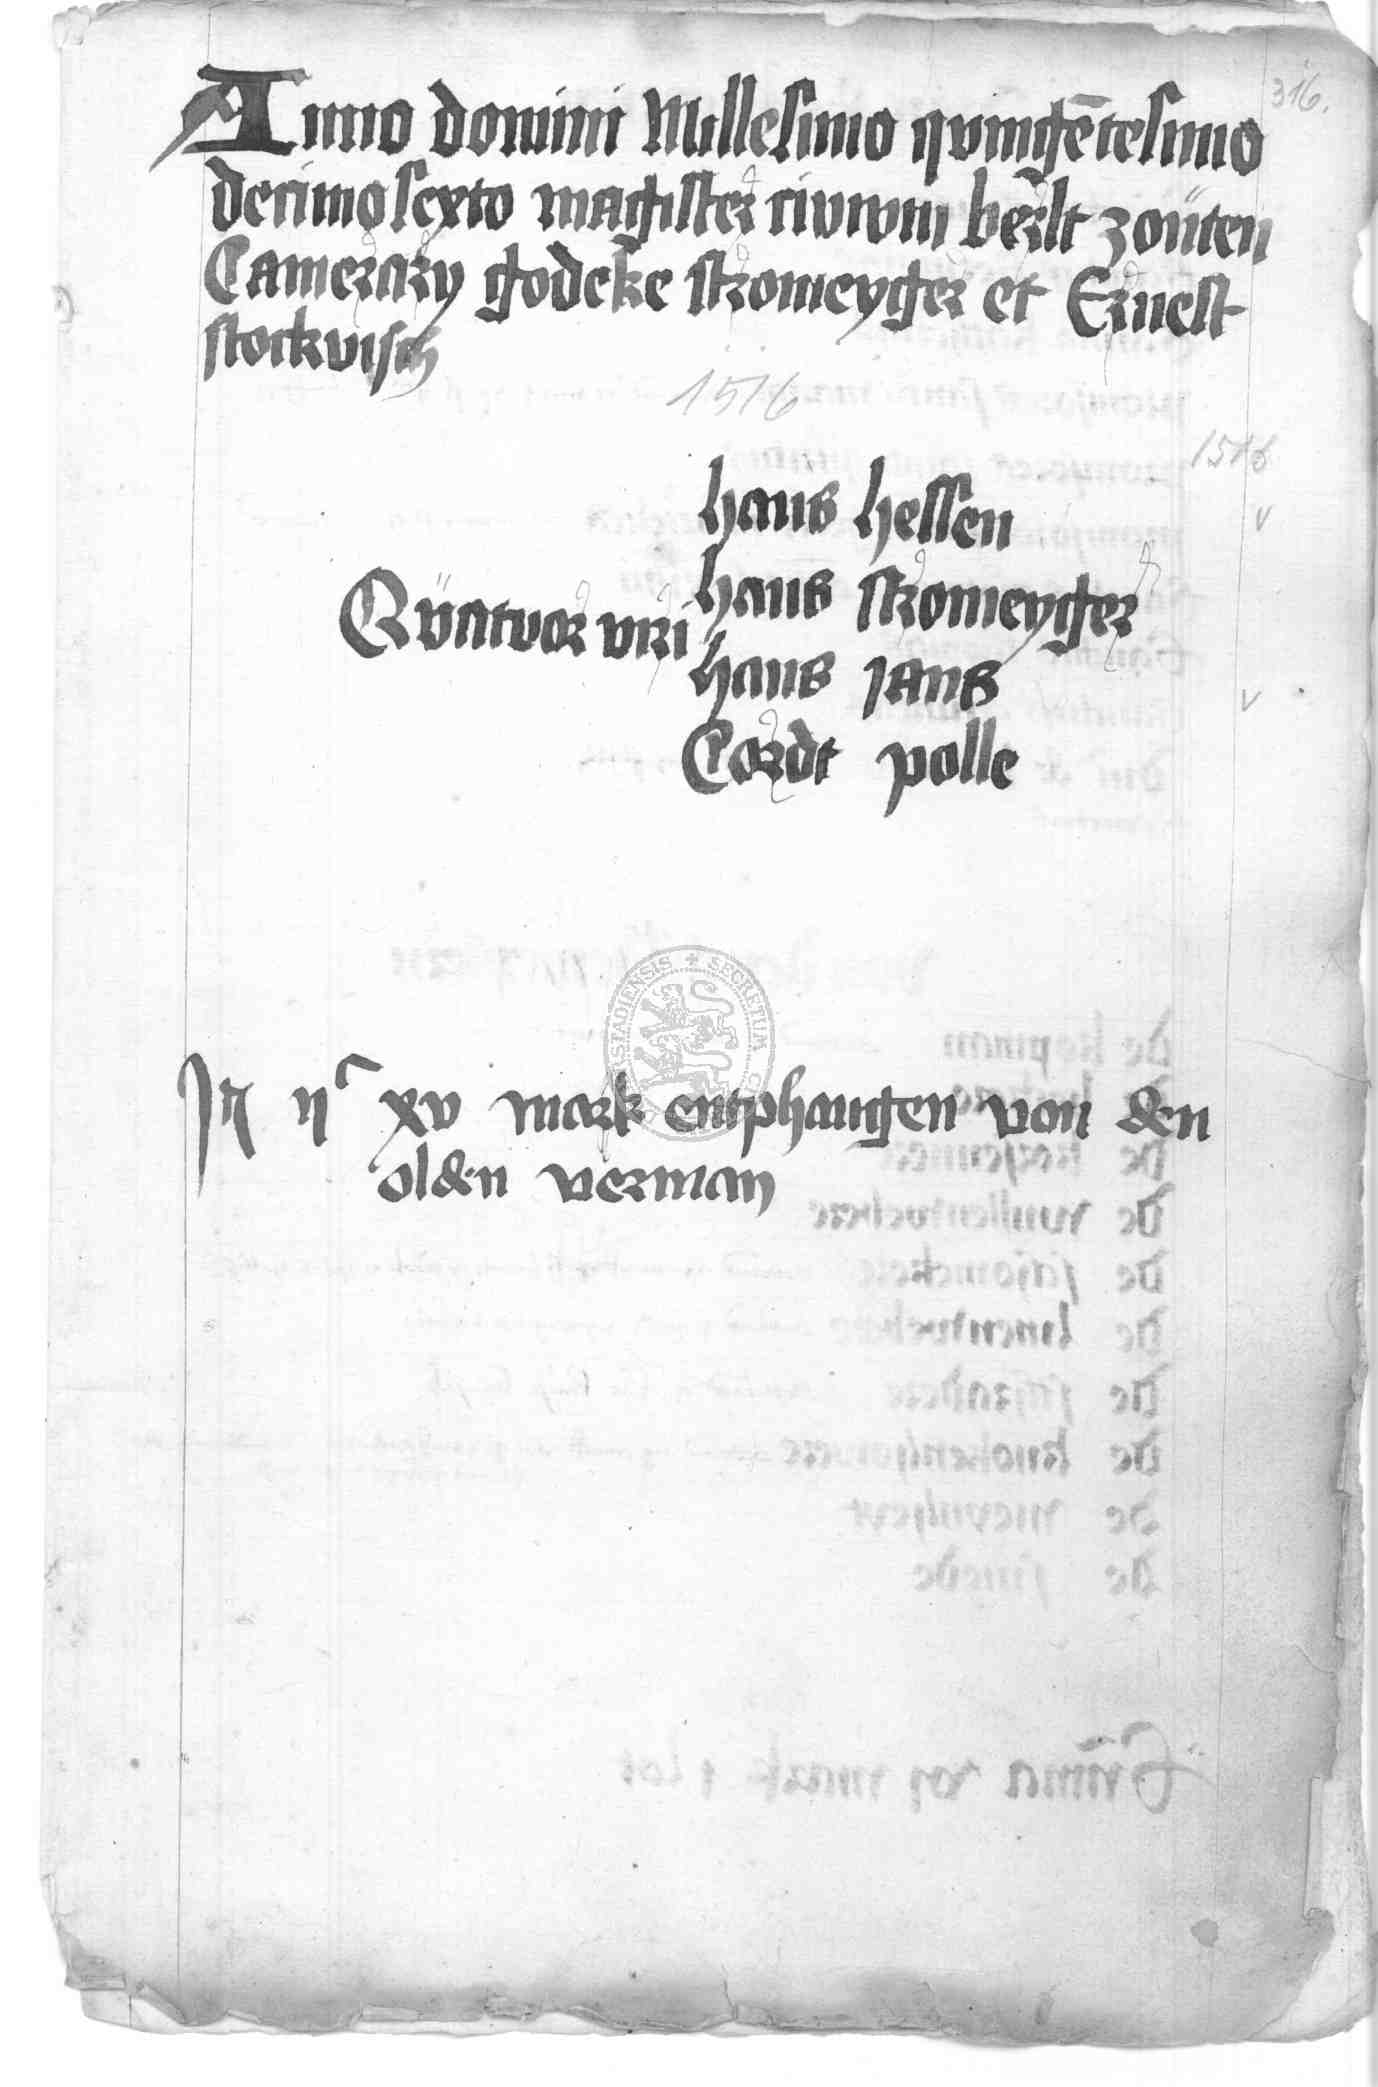 316.
Anno domini Millesimo qvingētesimo
decimosexto magister civium berlt zoüten
Camerary godeke stromeyger et Ernest
stockvisch
1516
1516
hans hessen
hans stromeyger
Qüatvor viri
hans jans
Cordt polle
xv mark entphangen von den
olden verman